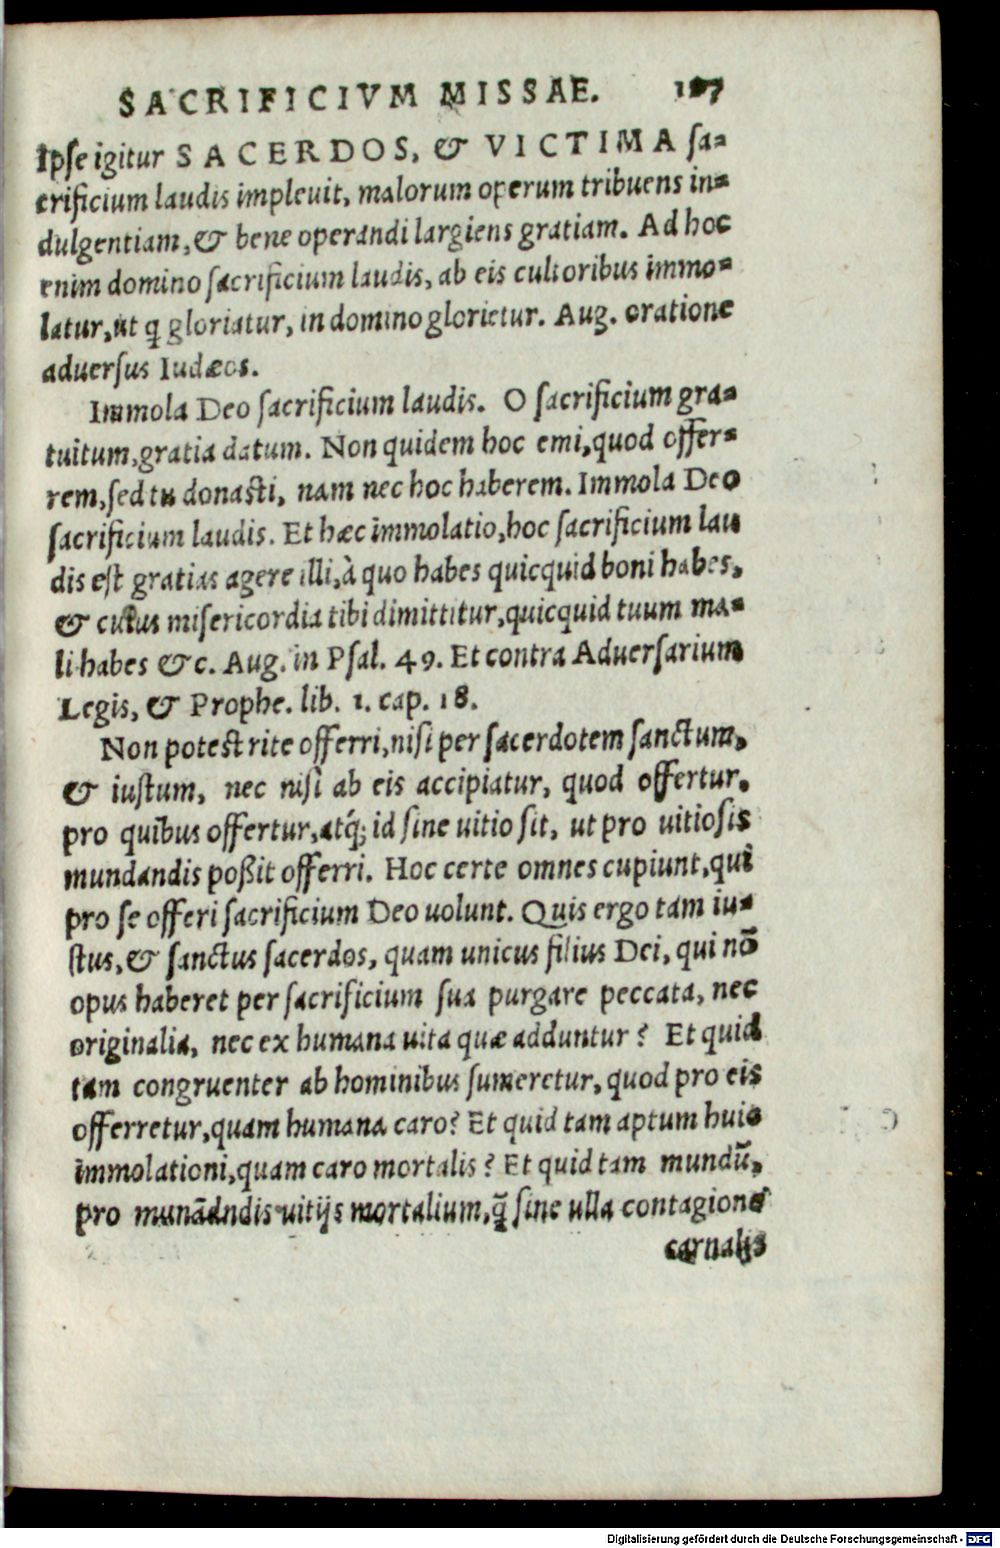 SACRIFICIVM MISSAE. 107
Ipse igitur SACERDOS, & VICTIMA sa-
crificium laudis impleuit, malorum operum tribuens in-
dulgentiam, & bene operandi largiens gratiam. Ad hoc
enim domino sacrificium laudis, ab eis cultoribus immo-
latur, ut q̃ gloriatur, in domino glorietur. Aug. oratione
aduersus Iudæos.
Immola Deo sacrificium laudis. O sacrificium gra-
tuitum, gratia datum. Non quidem hoc emi, quod offer-
rem, sed tu donasti, nam nec hoc haberem. Immola Deo
sacrificium laudis. Et hæc immolatio, hoc sacrificium lau
dis est gratias agere illi, à quo habes quicquid boni habes,
& cuius misericordia tibi dimittitur, quicquid tuum ma-
li habes &c. Aug. in Psal. 49. Et contra Aduersarium
Legis, & Prophe. lib. 1. cap. 18.
Non potest rite offerri, nisi per sacerdotem sanctum,
& iustum, nec nisi ab eis accipiatur, quod offertur,
pro quibus offertur, atq; id sine uitio sit, ut pro uitiosis
mundandis poßit offerri. Hoc certe omnes cupiunt, qui
pro se offeri sacrificium Deo uolunt. Quis ergo tam iu-
stus, & sanctus sacerdos, quam unicus filius Dei, qui nō
opus haberet per sacrificium sua purgare peccata, nec
originalia, nec ex humana uita quæ adduntur? Et quid
tam congruenter ab hominibus sumeretur, quod pro eis
offerretur, quam humana caro? Et quid tam aptum huic
immolationi, quam caro mortalis? Et quid tam mundū,
pro munādndis uitijs mortalium, q̃ sine ulla contagione
carnalis
Digitalisierung gefördert durch die Deutsche Forschungsgemeinschaft - DFG